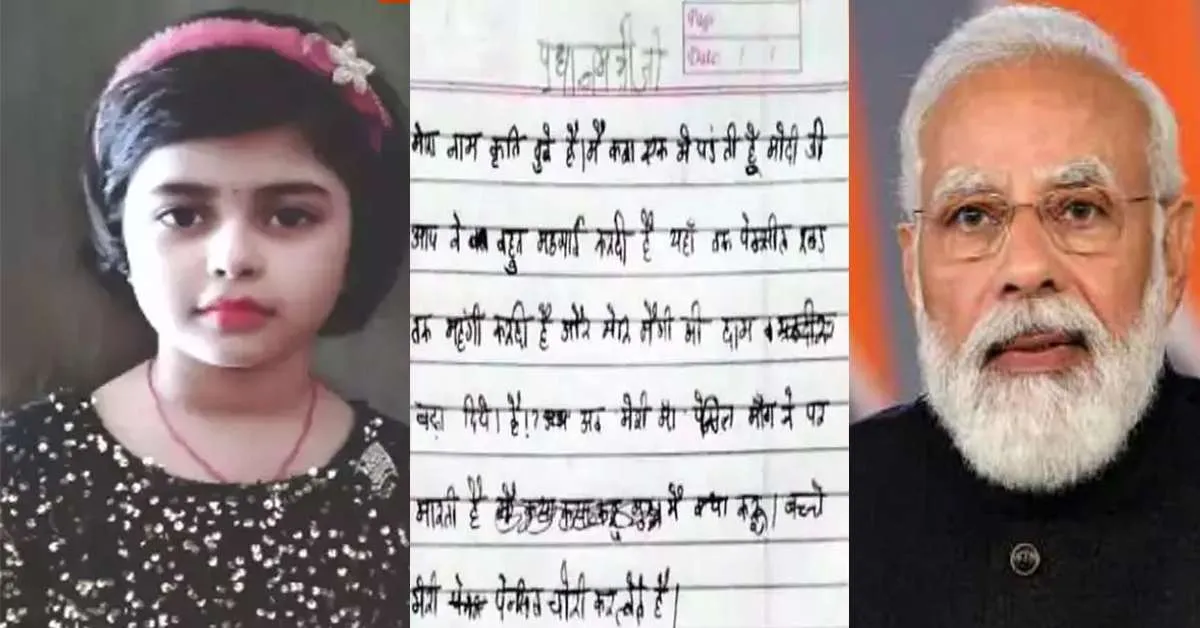 Page
Date / /
प्रधानमंत्री जी
मेरा नाम कृति दुबे है। मै कक्षा एक मे पढंती हूँ मोदी जी
आप ने बहुत महगाई करदी है यहाँ तक पेनसील रबड
तक महंगी करदी है और मेरि मैगी भी दाम
बढ़ा दिये। है!? अब मेरी माँ पेंसिल माँग ने पर
मारती है मै क्या करू। बच्चे
मेरी पेनसिल चोरी कर लेते है।